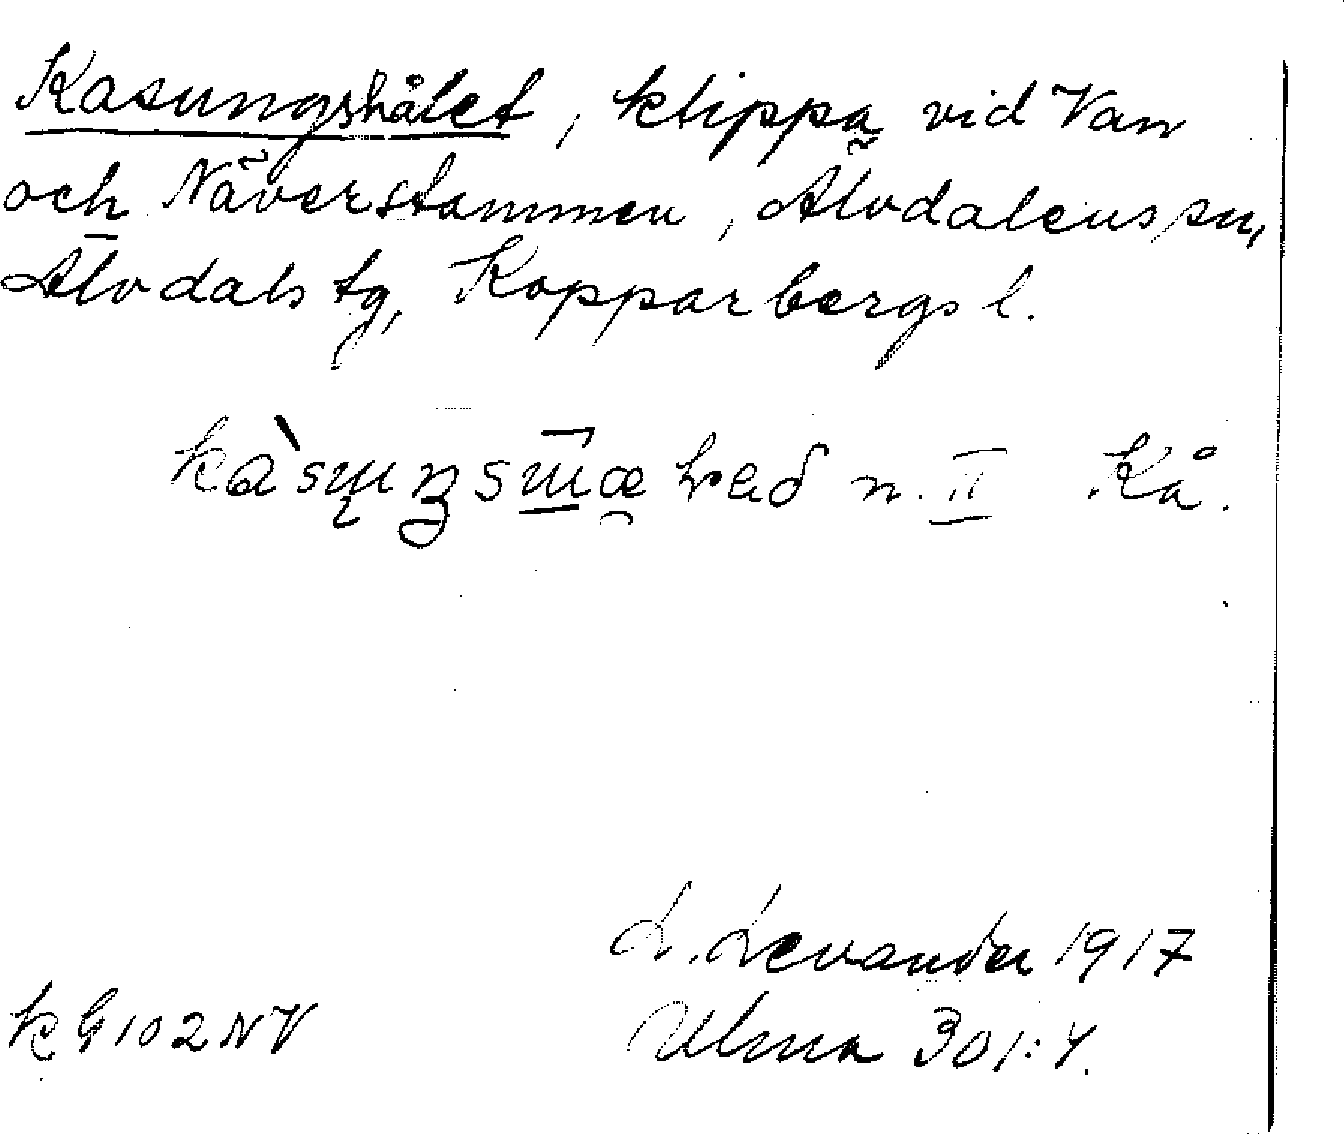 Kasungshålet, klippa vid Van
och Näverstammen, Älvdalens sn,
Älvdals tg, Kopparbergs l.
n. II Kå.
L. Levander 1917
kG102NV Ulma 301:4.